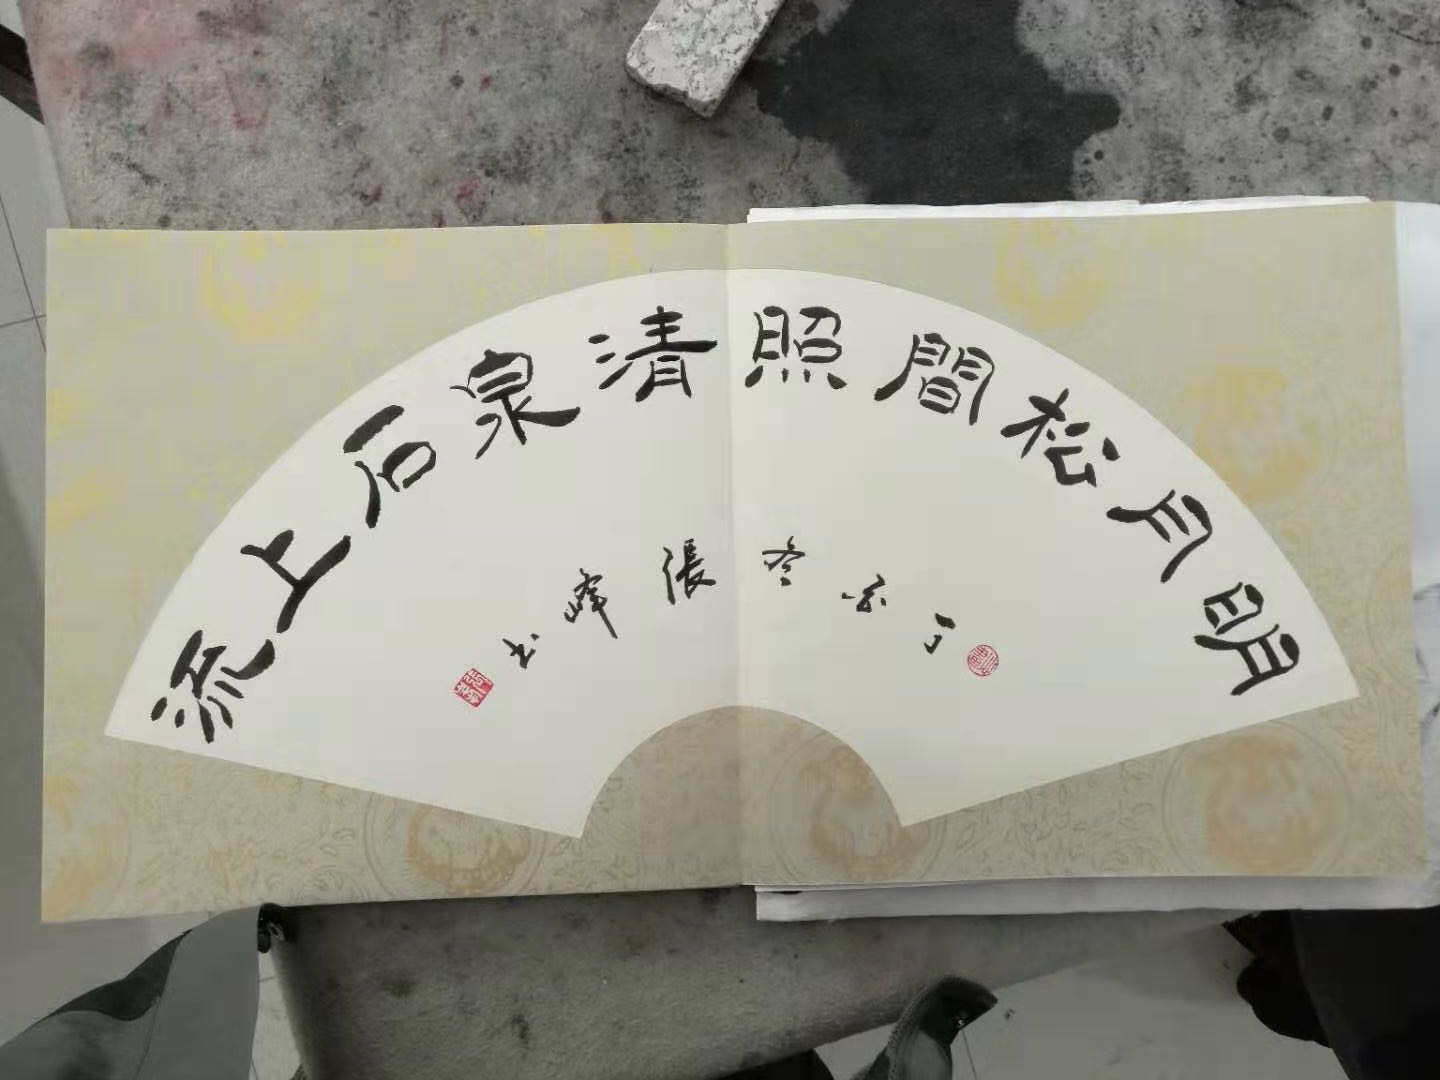 明月松間照清泉石上流
丁亥冬張峰书